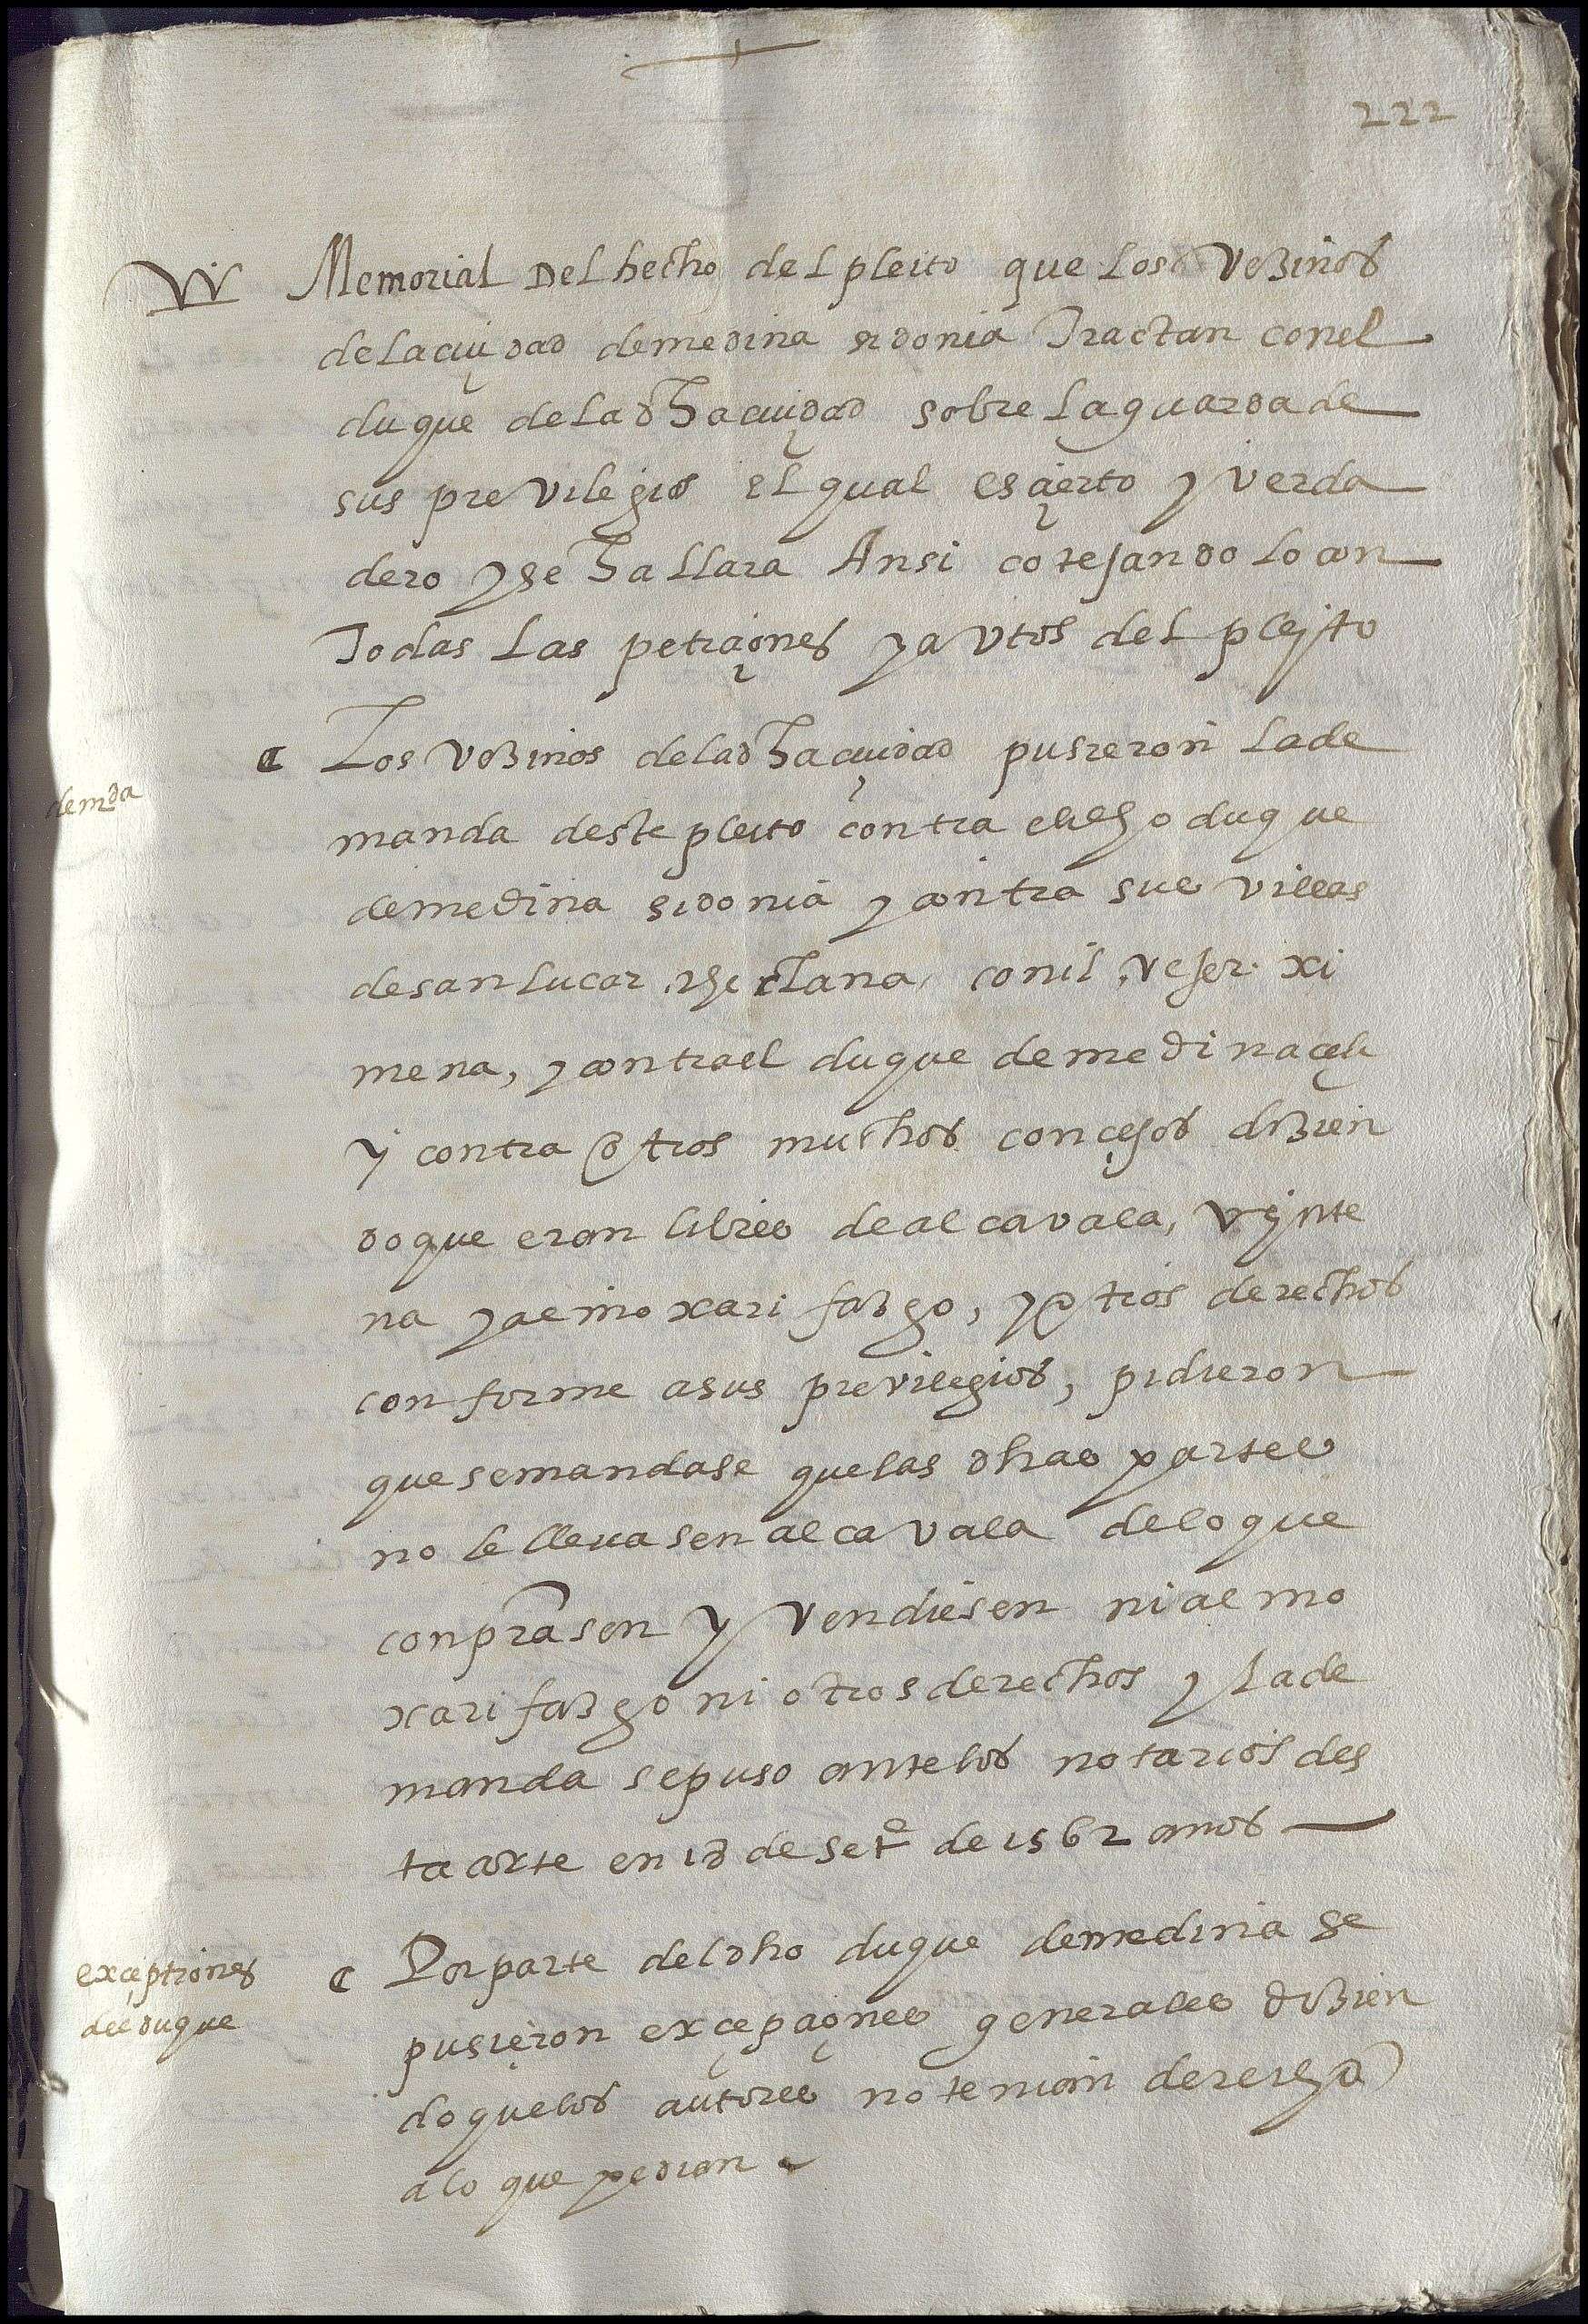 222
Memorial del hecho del pleito que los vezinos
de la çiudad de medina sidonia tractan con el
duque de la dha çiudad sobre la guarda de
sus previlegios el qual es çierto y verda
dero y se hallara Ansi cotejandolo con
todas las petiçiones y avtos del pleyto
demda
Los vezinos de la dha çiudad pusieron la de
manda deste pleito contra el dho duque
de medina sidonia y contra sus villas
de san lucar, chiclana, conil, vejer. xi
mena, y contra el duque de medinaçeli
y contra otros muchos conçejos dizien
do que eran libres de alcavala, veynte
na y almoxarifazgo, y otros derechos
conforme a sus previlegios, pidieron
que se mandase que las dhas partes
no le llevasen alcavala de lo que
conprasen y vendiesen ni almo
xarifazgo ni otros derechos y la de
manda se puso ante los notarios des
ta corte en 18 de sete de 1562 años
exçeptiones
del duque
Por parte del dho duque de medina se
pusieron exçepçiones generales dizien
do que los autores no tenian derecho
a lo que pedian